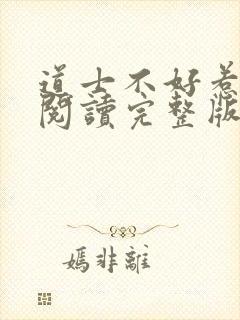 道士不好惹
閱讀完整版
嫣非離